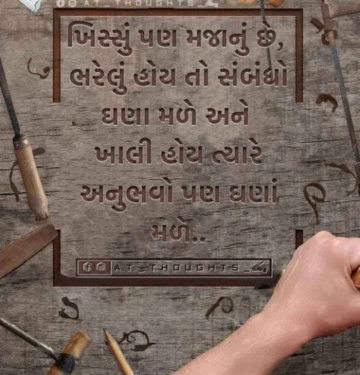 @AT_THOUGHTS_
ખિસ્સું પણ મજાનું છે,
ભરેલું હોય તો સંબંધો
ઘણા મળે અને
ખાલી હોય ત્યારે
અનુભવો પણ ઘણાં
મળે..
AT_THOUGHTS_